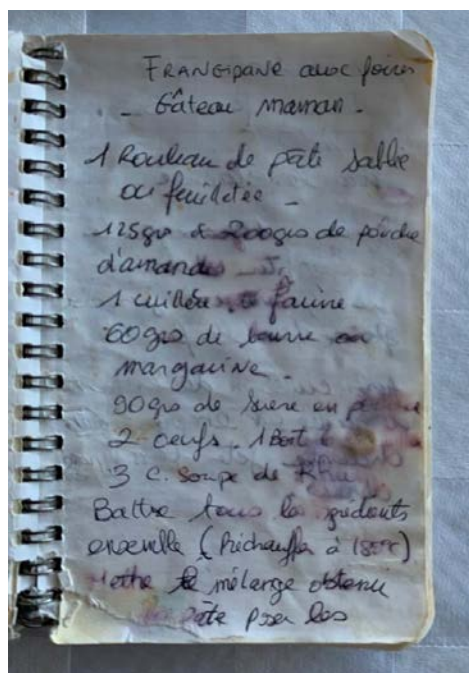 FRANGIPANE aux poires
- Gâteau maman -
1 Rouleau de pâte sablée
ou feuilletée -
125grs à 200grs de poudre
d'amandes
1 cuillère farine
60grs de beurre ou
margarine -
90grs de sucre en
2 oeufs. 1 Boit
3 C. Soupe de Rhum
Battre tous les grédients
ensemble (Préchauffer à 180°C)
Mettre le mélange obtenu
pâte poser les